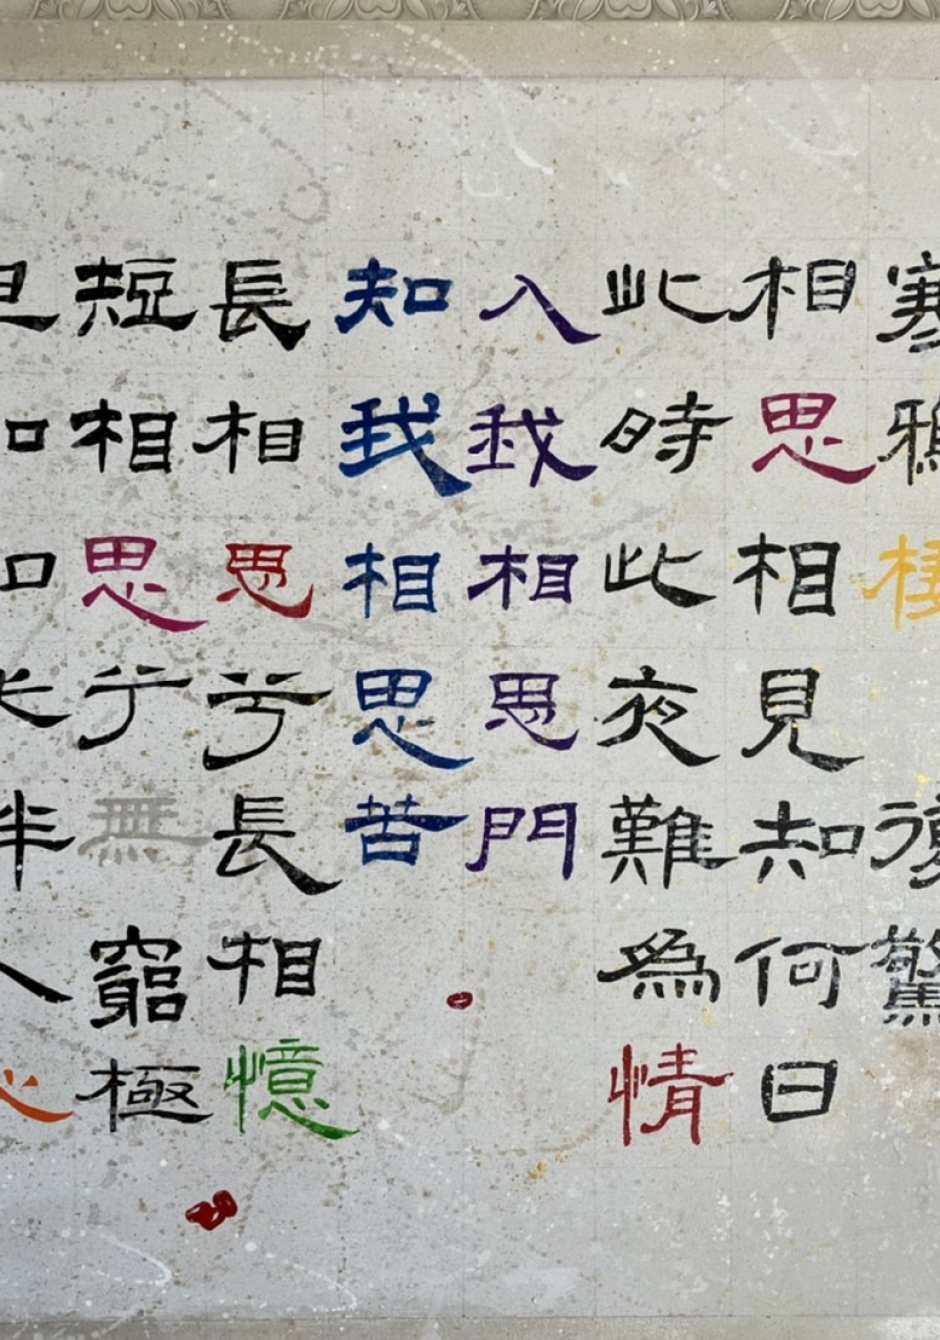 寒鴉棲復驚
相思相見知何日
此時此夜難為情
入我相思門
知我相思苦
長相思兮長相憶
短相思兮無窮極